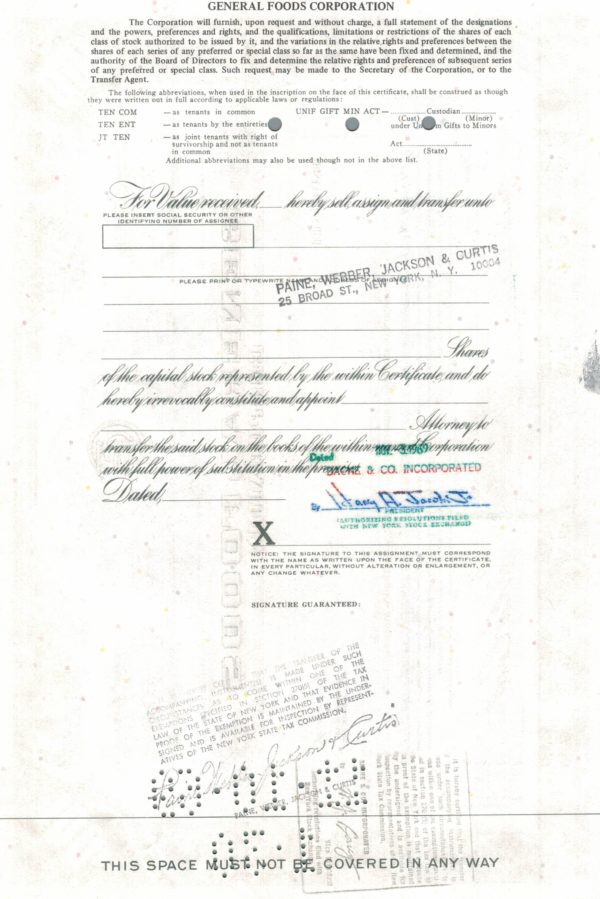 GENERAL FOODS CORPORATION
The Corporation will furnish, upon request and without charge, a full statement of the designations
and the powers, preferences and rights, and the qualifications, limitations or restrictions of the shares of each
class of stock authorized to be issued by it, and the variations in the relative rights and preferences between the
shares of each series of any preferred or special class so far as the same have been fixed and determined, and the
authority of the Board of Directors to fix and determine the relative rights and preferences of subsequent series
of any preferred or special class. Such request may be made to the Secretary of the Corporation, or to the
Transfer Agent.
The following abbreviations, when used in the inscription on the face of this certificate, shall be construed as though
they were written out in full according to applicable laws or regulations:
TEN COM — as tenants in common UNIF GIFT MIN ACT — Custodian
(Cust) (Minor)
TEN ENT — as tenants by the entireties under Uniform Gifts to Minors
JT TEN — as joint tenants with right of Act
survivorship and not as tenants (State)
in common
Additional abbreviations may also be used though not in the above list.
For Value received, hereby sell, assign and transfer unto
PLEASE INSERT SOCIAL SECURITY OR OTHER
IDENTIFYING NUMBER OF ASSIGNEE
PAINE, WEBBER, JACKSON & CURTIS
25 BROAD ST., NEW YORK, N. Y. 10004
PLEASE PRINT OR TYPEWRITE
Shares
of the capital stock represented by the within Certificate, and do
hereby irrevocably constitute and appoint
Attorney to
transfer the said stock on the books of the within Corporation
Dated 1969
with full power of substitution in the
BACHE & CO. INCORPORATED
Dated,
By Harry A. Jacobs Jr
PRESIDENT
(AUTHORIZING RESOLUTIONS FILED
WITH NEW YORK STOCK EXCHANGE)
X
NOTICE: THE SIGNATURE TO THIS ASSIGNMENT MUST CORRESPOND
WITH THE NAME AS WRITTEN UPON THE FACE OF THE CERTIFICATE,
IN EVERY PARTICULAR, WITHOUT ALTERATION OR ENLARGEMENT, OR
ANY CHANGE WHATEVER.
SIGNATURE GUARANTEED:
TRANSFER OF THE
ACCOMPANYING IS MADE UNDER SUCH
CIRCUMSTANCES AS TO COME WITHIN ONE OF THE
EXEMPTIONS SPECIFIED IN SECTION 270(5) OF THE TAX
LAW OF THE STATE OF NEW YORK AND THAT EVIDENCE IN
PROOF OF THE EXEMPTION IS MAINTAINED BY THE UNDER-
SIGNED AND IS AVAILABLE FOR INSPECTION BY REPRESENT-
ATIVES OF THE NEW YORK STATE TAX COMMISSION.
Paine Webber Jackson & Curtis
PAINE, WEBBER, JACKSON & CURTIS
THIS SPACE MUST NOT BE COVERED IN ANY WAY